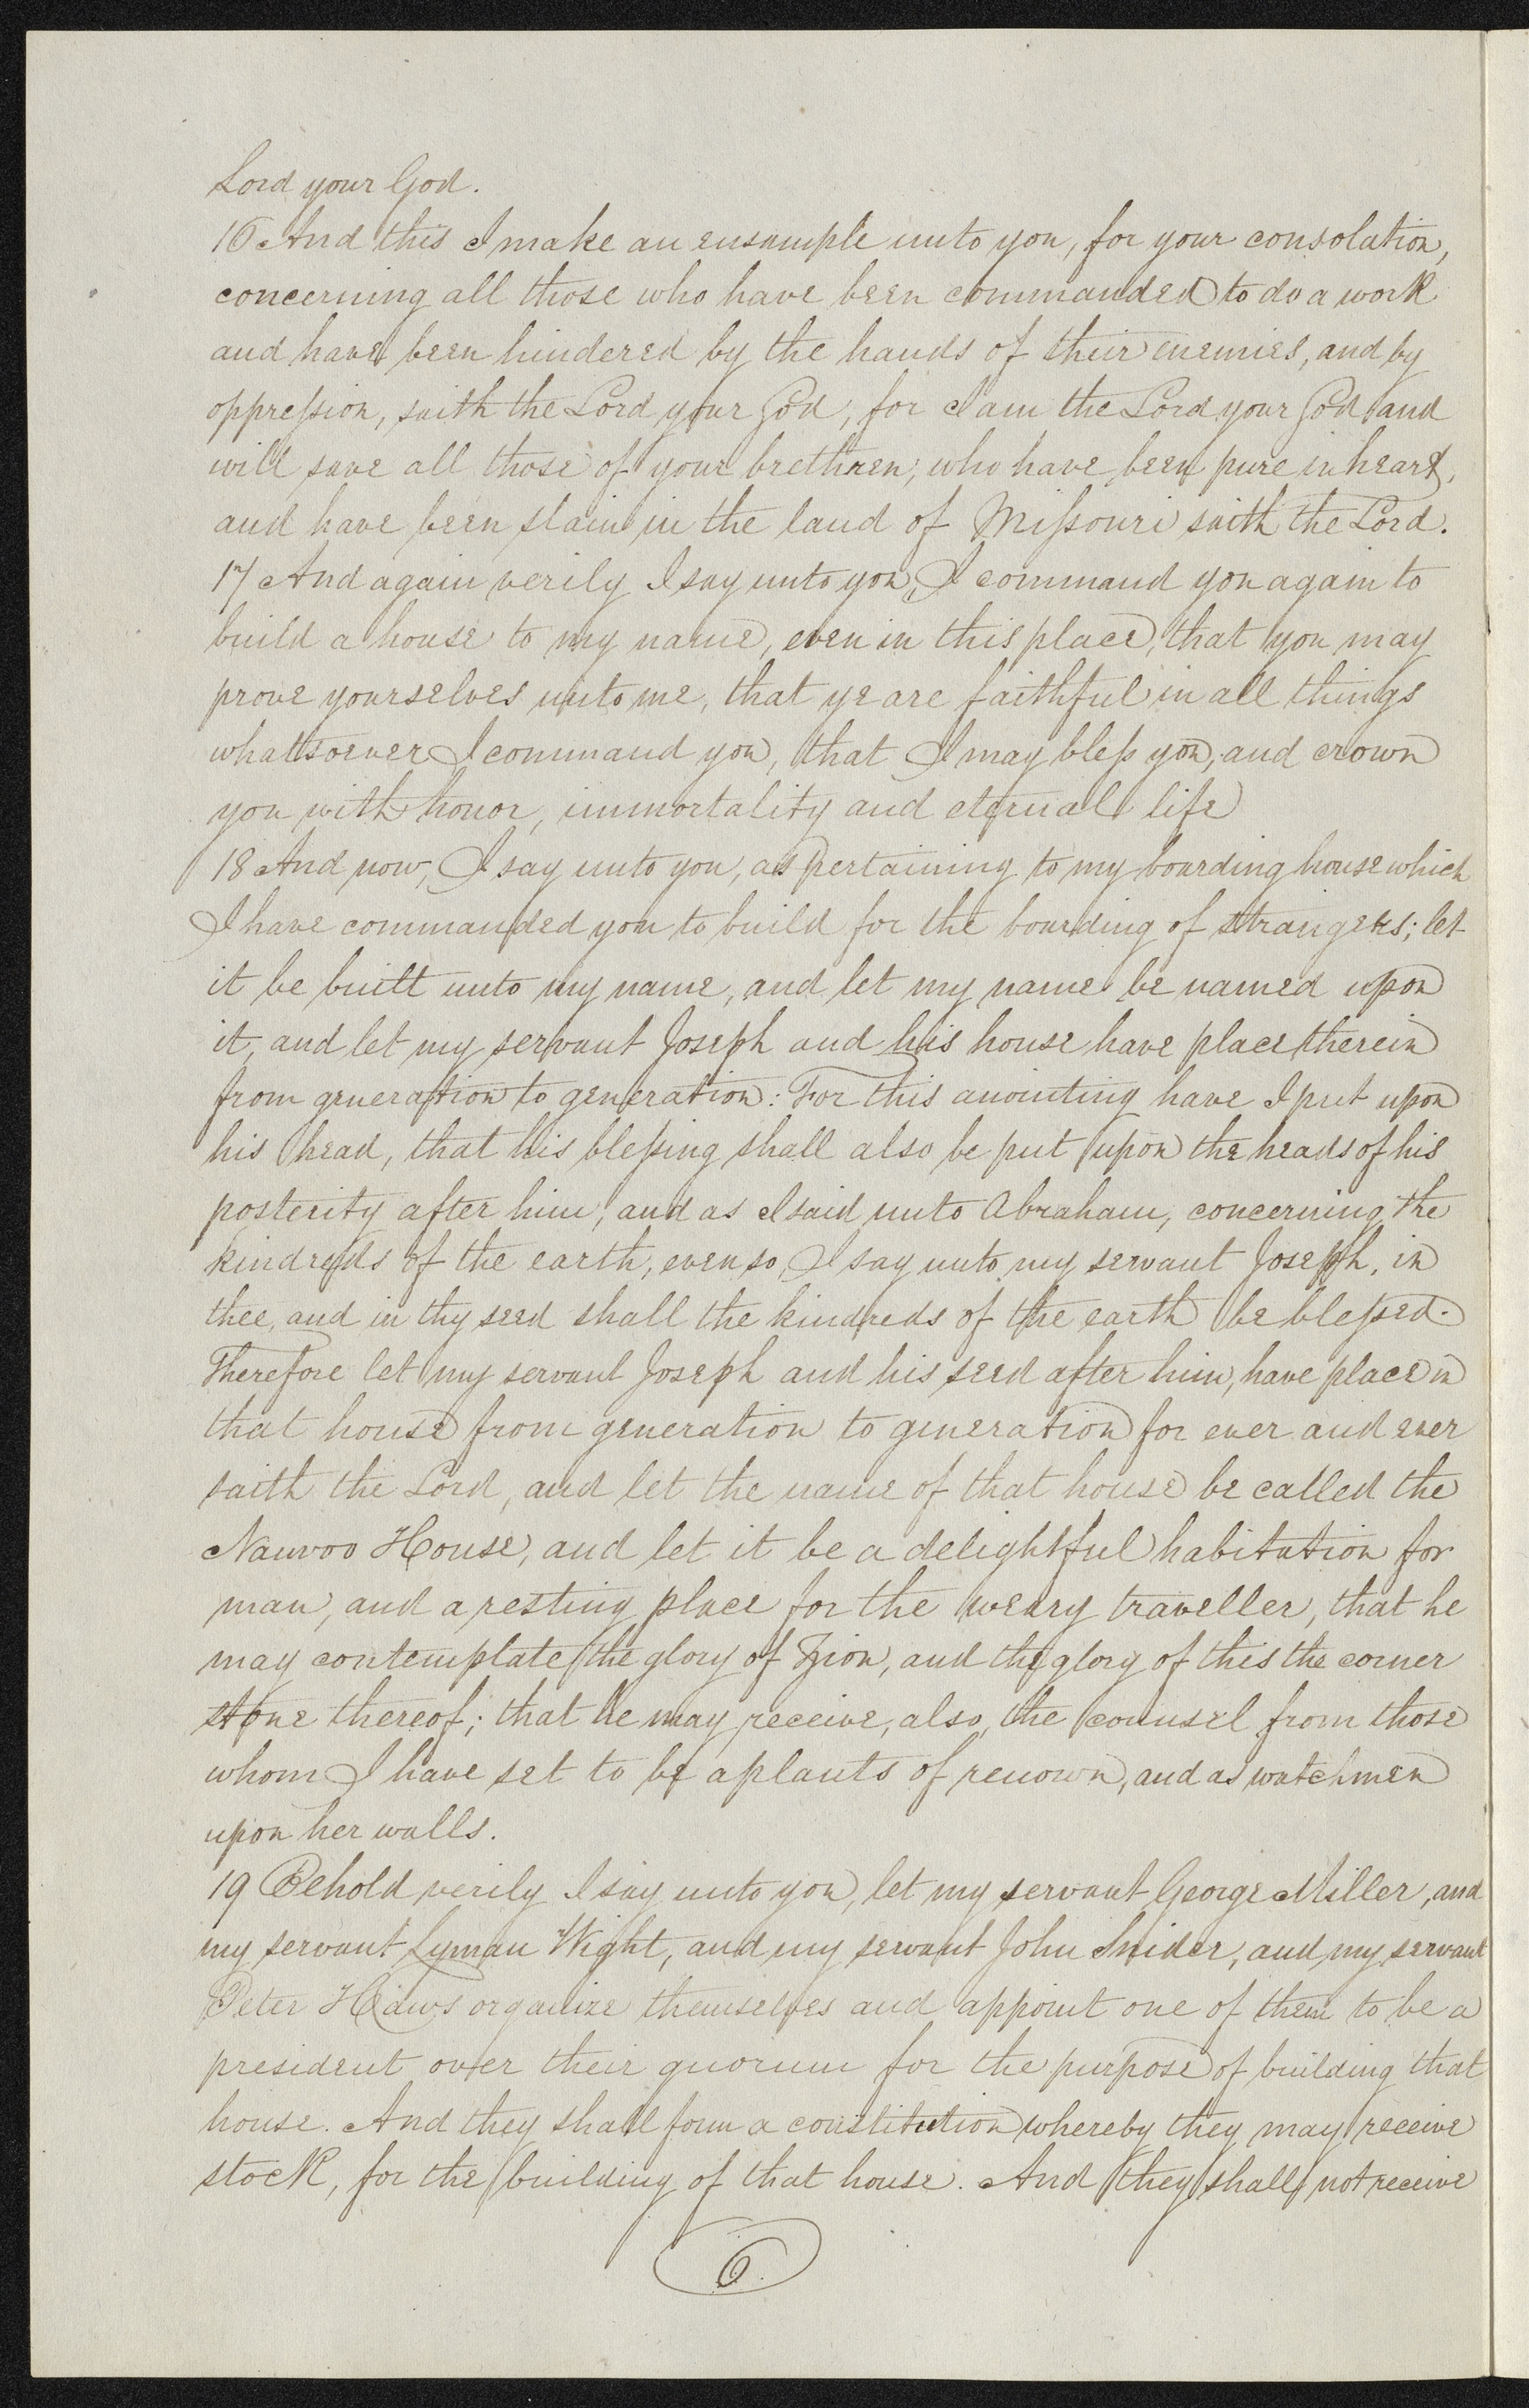 Lord your God.
16 And this I make an ensample unto you, for your consolation,
concerning all those who have been commanded to do a work
and have been hindered by the hands of their enemies, and by
oppression, saith the Lord your God, for I am the Lord your God and
will save all those of your brethren, who have been pure in heart,
and have been slain in the land of Missouri saith the Lord.
17 And again verily I say unto you, I command you again to
build a house to my name, even in this place, that you may
prove yourselves unto me, that ye are faithful in all things
whatsoever I command you, that I may bless you, and crown
you with honor, immortality and eternal life
18 And now, I say unto you, as pertaining to my boarding house which
I have commanded you to build for the boarding of strangers; let
it be built unto my name, and let my name be named upon
it, and let my servant Joseph and his house have place therein
from generation to generation: For this anointing have I put upon
his head, that his blessing shall also be put upon the heads of his
posterity after him, and as I said unto Abraham, concerning the
kindreds of the earth, even so, I say unto my servant Joseph, in
thee, and in thy seed shall the kindreds of the earth be blessed.
Therefore let my servant Joseph and his seed after him, have place in
that house from generation to generation for ever and ever
saith the Lord, and let the name of that house be called the
Nauvoo House, and let it be a delightful habitation for
man, and a resting place for the weary traveller, that he
may contemplate the glory of Zion, and the glory of this the corner
stone thereof; that he may receive, also, the counsel from those
whom I have set to be a plants of renown, and as watchmen
upon her walls.
19 Behold verily I say unto you, let my servant George Miller, and
my servant Lyman Wight, and my servant John Snider, and my servant
Peter Haws organize themselves and appoint one of them to be a
president over their quorum for the purpose of building that
house. And they shall form a constitution whereby they may receive
stock, for the building of that house. And they shall not receive
6.